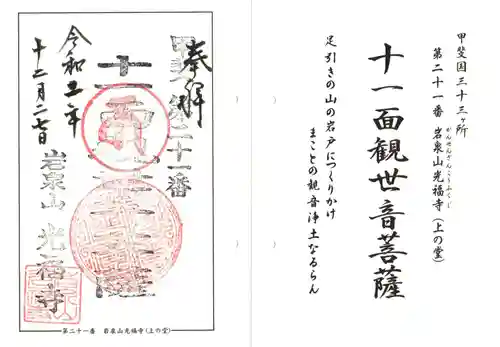 甲斐国三十三ヶ所
第二十一番 岩泉山光福寺（上の堂）
がんせんざんこうふくじ
十一面観世音菩薩
足引きの山の岩戸につくりかけ
まことの観音浄土なるらん
奉拝
第二十一番
十一面
令和五年
十二月二七日
岩泉山 光福寺
第二十一番 岩泉山光福寺(上の堂)